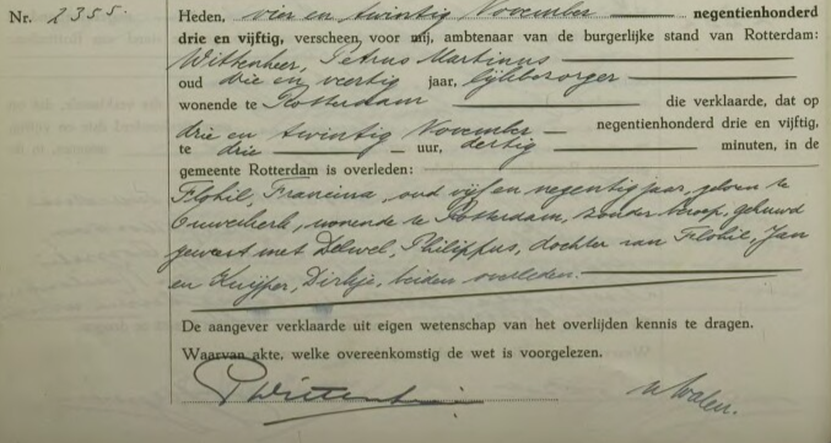 Nr. 2355.
Heden, vier en twintig November negentienhonderd
drie en vijftig, verscheen voor mij, ambtenaar van de burgerlijke stand van Rotterdam:
Wittenheer, Petrus Martinus
oud drie en veertig jaar, lijkbezorger
wonende te Rotterdam die verklaarde, dat op
drie en twintig November negentienhonderd drie en vijftig,
te drie uur, dertig minuten, in de
gemeente Rotterdam is overleden:
Flohil, Francina, oud vijf en negentig jaar, geboren te
Ouwerkerk, wonende te Rotterdam, zonder beroep, gehuwd
geweest met Delwel, Philippus, dochter van Flohil, Jan
en Kuijper, Dirkje, beiden overleden.
De aangever verklaarde uit eigen wetenschap van het overlijden kennis te dragen.
Waarvan akte, welke overeenkomstig de wet is voorgelezen.